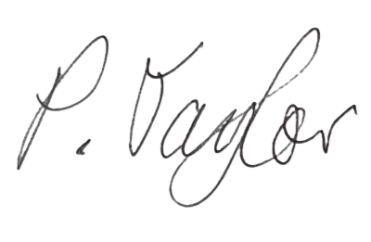 P. Taylor